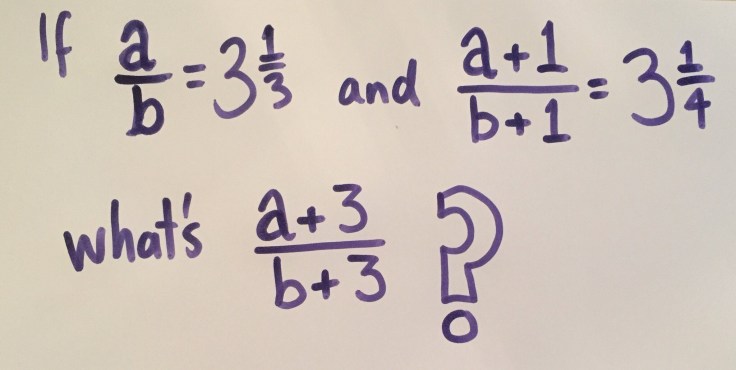 If a/b = 3 1/3 and a+1/b+1 = 3 1/4
what's a+3/b+3 ?